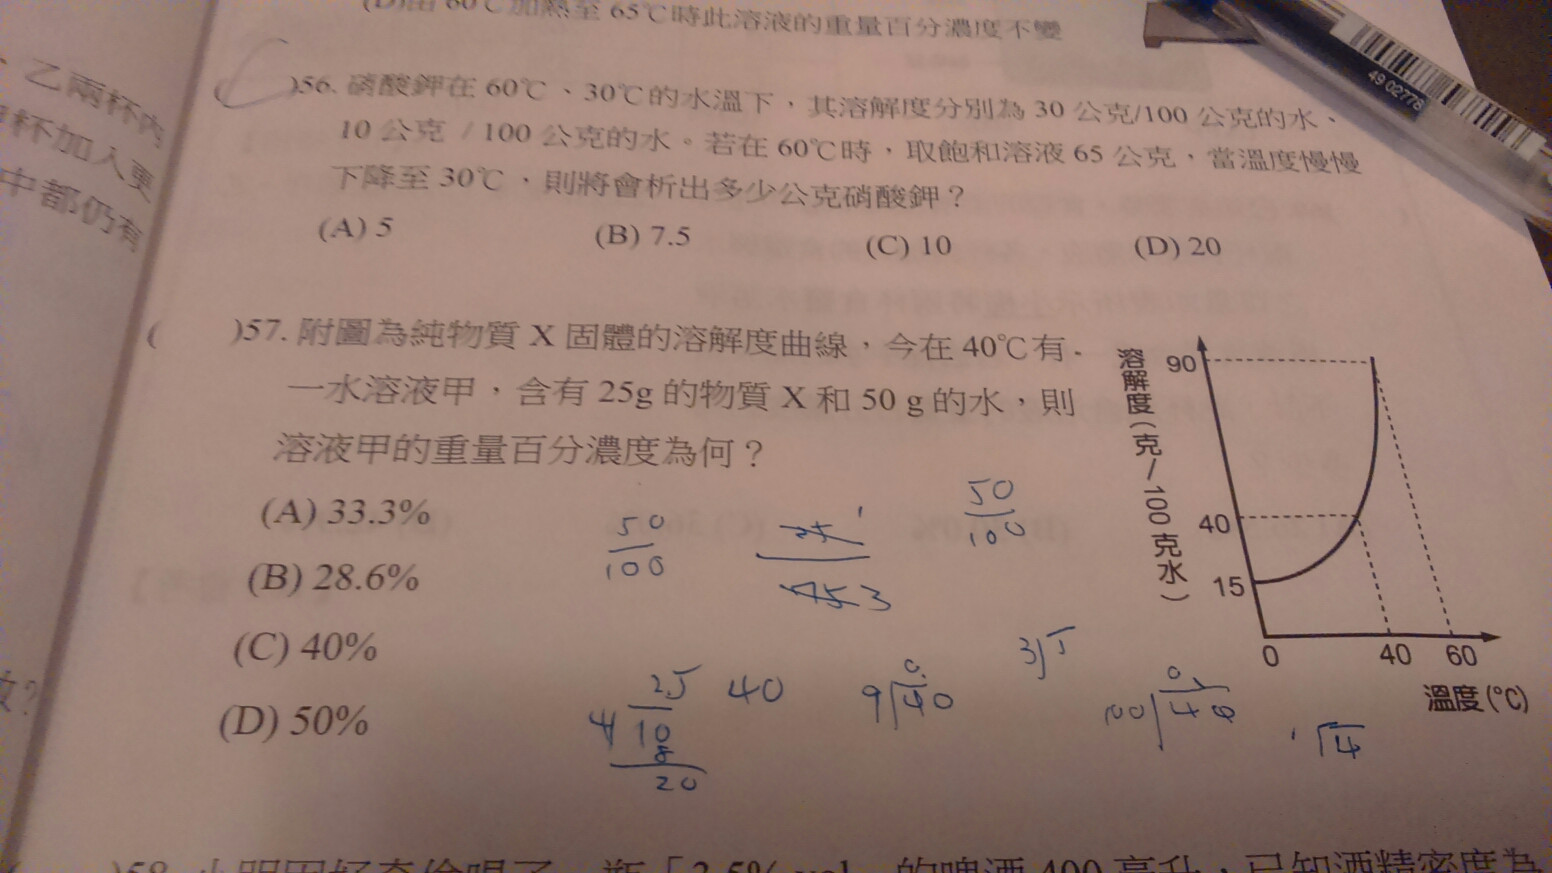 (D)由 60℃加熱至 65℃時此溶液的重量百分濃度不變
、乙兩杯內
杯加入更
中都仍有
( C )56. 硝酸鉀在 60℃、30℃的水溫下，其溶解度分別為 30 公克/100 公克的水、
10 公克 / 100 公克的水。若在 60℃時，取飽和溶液 65 公克，當溫度慢慢
下降至 30℃，則將會析出多少公克硝酸鉀？
(A) 5 (B) 7.5 (C) 10 (D) 20
( )57. 附圖為純物質 X 固體的溶解度曲線，今在 40℃有
一水溶液甲，含有 25g 的物質 X 和 50 g 的水，則
溶液甲的重量百分濃度為何？
(A) 33.3%
(B) 28.6%
(C) 40%
(D) 50%
溶解度(克/100克水)
90
40
15
0 40 60
溫度(℃)
50
100
3
50
100
25
4 10
8
20
40
9 40
49 02778
)58.